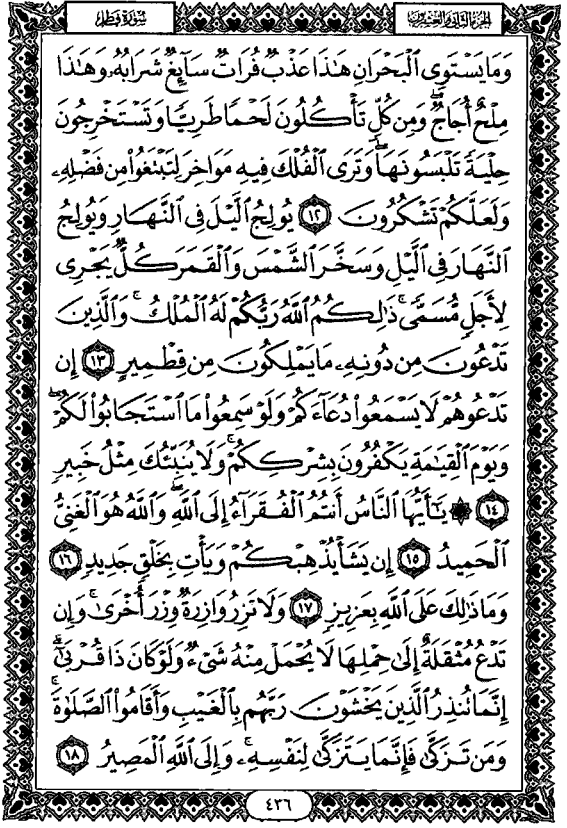 الجزء الثاني والعشرين
سورة فاطر
وَمَا يَسْتَوِى ٱلْبَحْرَانِ هَٰذَا عَذْبٌ فُرَاتٌ سَآئِغٌ شَرَابُهُۥ وَهَٰذَا
مِلْحٌ أُجَاجٌ ۖ وَمِن كُلٍّ تَأْكُلُونَ لَحْمًا طَرِيًّا وَتَسْتَخْرِجُونَ
حِلْيَةً تَلْبَسُونَهَا ۖ وَتَرَى ٱلْفُلْكَ فِيهِ مَوَاخِرَ لِتَبْتَغُوا۟ مِن فَضْلِهِۦ
وَلَعَلَّكُمْ تَشْكُرُونَ ١٢ يُولِجُ ٱلَّيْلَ فِى ٱلنَّهَارِ وَيُولِجُ
ٱلنَّهَارَ فِى ٱلَّيْلِ وَسَخَّرَ ٱلشَّمْسَ وَٱلْقَمَرَ كُلٌّ يَجْرِى
لِأَجَلٍ مُّسَمًّى ۚ ذَٰلِكُمُ ٱللَّهُ رَبُّكُمْ لَهُ ٱلْمُلْكُ ۚ وَٱلَّذِينَ
تَدْعُونَ مِن دُونِهِۦ مَا يَمْلِكُونَ مِن قِطْمِيرٍ ١٣ إِن
تَدْعُوهُمْ لَا يَسْمَعُوا۟ دُعَآءَكُمْ وَلَوْ سَمِعُوا۟ مَا ٱسْتَجَابُوا۟ لَكُمْ ۖ
وَيَوْمَ ٱلْقِيَٰمَةِ يَكْفُرُونَ بِشِرْكِكُمْ ۚ وَلَا يُنَبِّئُكَ مِثْلُ خَبِيرٍ
١٤ ۞ يَٰٓأَيُّهَا ٱلنَّاسُ أَنتُمُ ٱلْفُقَرَآءُ إِلَى ٱللَّهِ ۖ وَٱللَّهُ هُوَ ٱلْغَنِىُّ
ٱلْحَمِيدُ ١٥ إِن يَشَأْ يُذْهِبْكُمْ وَيَأْتِ بِخَلْقٍ جَدِيدٍ ١٦
وَمَا ذَٰلِكَ عَلَى ٱللَّهِ بِعَزِيزٍ ١٧ وَلَا تَزِرُ وَازِرَةٌ وِزْرَ أُخْرَىٰ ۚ وَإِن
تَدْعُ مُثْقَلَةٌ إِلَىٰ حِمْلِهَا لَا يُحْمَلْ مِنْهُ شَىْءٌ وَلَوْ كَانَ ذَا قُرْبَىٰٓ ۗ
إِنَّمَا تُنذِرُ ٱلَّذِينَ يَخْشَوْنَ رَبَّهُم بِٱلْغَيْبِ وَأَقَامُوا۟ ٱلصَّلَوٰةَ ۚ
وَمَن تَزَكَّىٰ فَإِنَّمَا يَتَزَكَّىٰ لِنَفْسِهِۦ ۚ وَإِلَى ٱللَّهِ ٱلْمَصِيرُ ١٨
٤٣٦